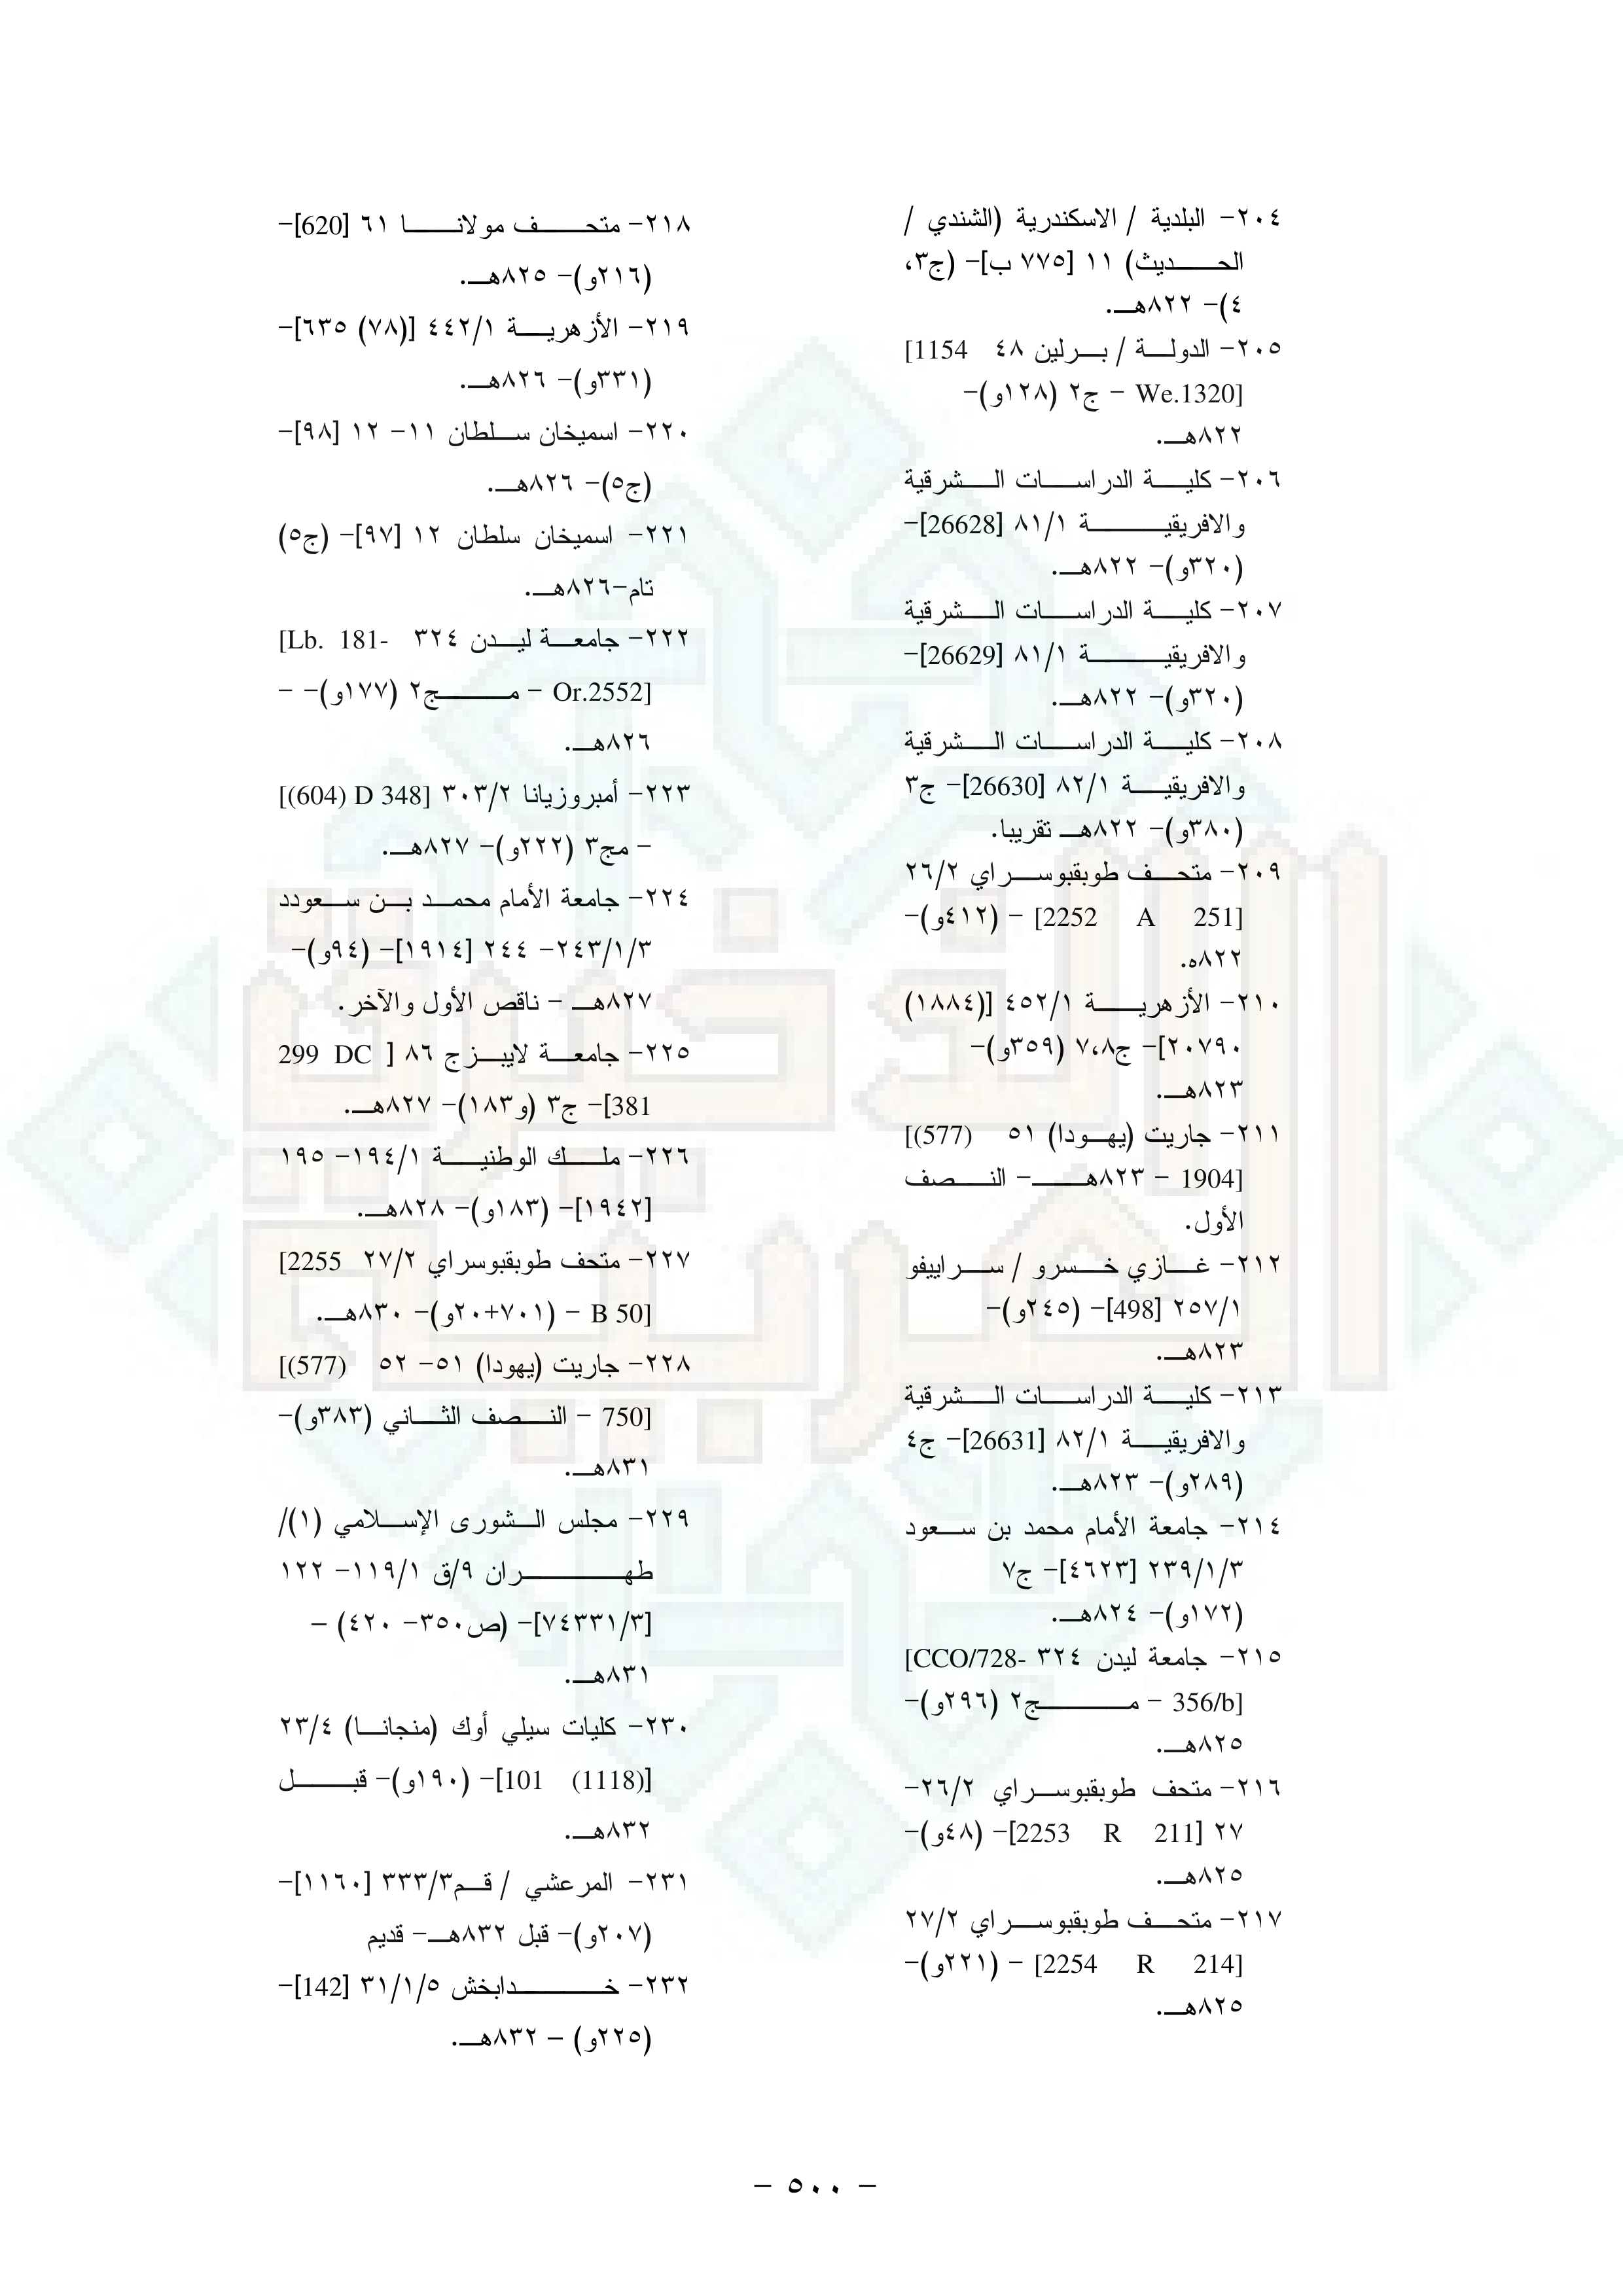 ٢٠٤- البلدية / الاسكندرية (الشندي /
الحديث) ١١ [٧٧٥ ب]- (ج٣،
٤)- ٨٢٢هـ.
٢٠٥- الدولة / برلين ٤٨ [1154
We.1320] - ج٢ (١٢٨و)-
٨٢٢هـ.
٢٠٦- كلية الدراسات الشرقية
والافريقية ٨١/١ [26628]-
(٣٢٠و)- ٨٢٢هـ.
٢٠٧- كلية الدراسات الشرقية
والافريقية ٨١/١ [26629]-
(٣٢٠و)- ٨٢٢هـ.
٢٠٨- كلية الدراسات الشرقية
والافريقية ٨٢/١ [26630]- ج٣
(٣٨٠و)- ٨٢٢هـ تقريبا.
٢٠٩- متحف طوبقبوسراي ٢٦/٢
[2252 A 251] - (٤١٢و)-
٨٢٢ه.
٢١٠- الأزهرية ٤٥٢/١ [(١٨٨٤)
٢٠٧٩٠]- ج٧،٨ (٣٥٩و)-
٨٢٣هـ.
٢١١- جاريت (يهودا) ٥١ [(577)
1904] - ٨٢٣هـ- النصف
الأول.
٢١٢- غازي خسرو / سراييفو
٢٥٧/١ [498]- (٢٤٥و)-
٨٢٣هـ.
٢١٣- كلية الدراسات الشرقية
والافريقية ٨٢/١ [26631]- ج٤
(٢٨٩و)- ٨٢٣هـ.
٢١٤- جامعة الأمام محمد بن سعود
٢٣٩/١/٣ [٤٦٢٣]- ج٧
(١٧٢و)- ٨٢٤هـ.
٢١٥- جامعة ليدن ٣٢٤ [CCO/728-
356/b] - مج٢ (٢٩٦و)-
٨٢٥هـ.
٢١٦- متحف طوبقبوسراي ٢٦/٢-
٢٧ [2253 R 211]- (٤٨و)-
٨٢٥هـ.
٢١٧- متحف طوبقبوسراي ٢٧/٢
[2254 R 214] - (٢٢١و)-
٨٢٥هـ.
٢١٨- متحف مولانا ٦١ [620]-
(٢١٦و)- ٨٢٥هـ.
٢١٩- الأزهرية ٤٤٢/١ [(٧٨) ٦٣٥]-
(٣٣١و)- ٨٢٦هـ.
٢٢٠- اسميخان سلطان ١١- ١٢ [٩٨]-
(ج٥)- ٨٢٦هـ.
٢٢١- اسميخان سلطان ١٢ [٩٧]- (ج٥)
تام-٨٢٦هـ.
٢٢٢- جامعة ليدن ٣٢٤ [Lb. 181-
Or.2552] - مج٢ (١٧٧و)- -
٨٢٦هـ.
٢٢٣- أمبروزيانا ٣٠٣/٢ [(604) D 348]
- مج٣ (٢٢٢و)- ٨٢٧هـ.
٢٢٤- جامعة الأمام محمد بن سعودد
٢٤٣/١/٣- ٢٤٤ [١٩١٤]- (٩٤و)-
٨٢٧هـ - ناقص الأول والآخر.
٢٢٥- جامعة لايبزج ٨٦ [ 299 DC
381]- ج٣ (و١٨٣)- ٨٢٧هـ.
٢٢٦- ملك الوطنية ١٩٤/١- ١٩٥
[١٩٤٢]- (١٨٣و)- ٨٢٨هـ.
٢٢٧- متحف طوبقبوسراي ٢٧/٢ [2255
B 50] - (٧٠١+٢٠و)- ٨٣٠هـ.
٢٢٨- جاريت (يهودا) ٥١- ٥٢ [(577)
750] - النصف الثاني (٣٨٣و)-
٨٣١هـ.
٢٢٩- مجلس الشورى الإسلامي (١)/
طهران ٩/ق ١١٩/١- ١٢٢
[٧٤٣٣١/٣]- (ص٣٥٠- ٤٢٠) -
٨٣١هـ.
٢٣٠- كليات سيلي أوك (منجانا) ٢٣/٤
[101 (1118)]- (١٩٠و)- قبل
٨٣٢هـ.
٢٣١- المرعشي / قم٣٣٣/٣ [١١٦٠]-
(٢٠٧و)- قبل ٨٣٢هـ- قديم
٢٣٢- خدابخش ٣١/١/٥ [142]-
(٢٢٥و) - ٨٣٢هـ.
- ٥٠٠ -